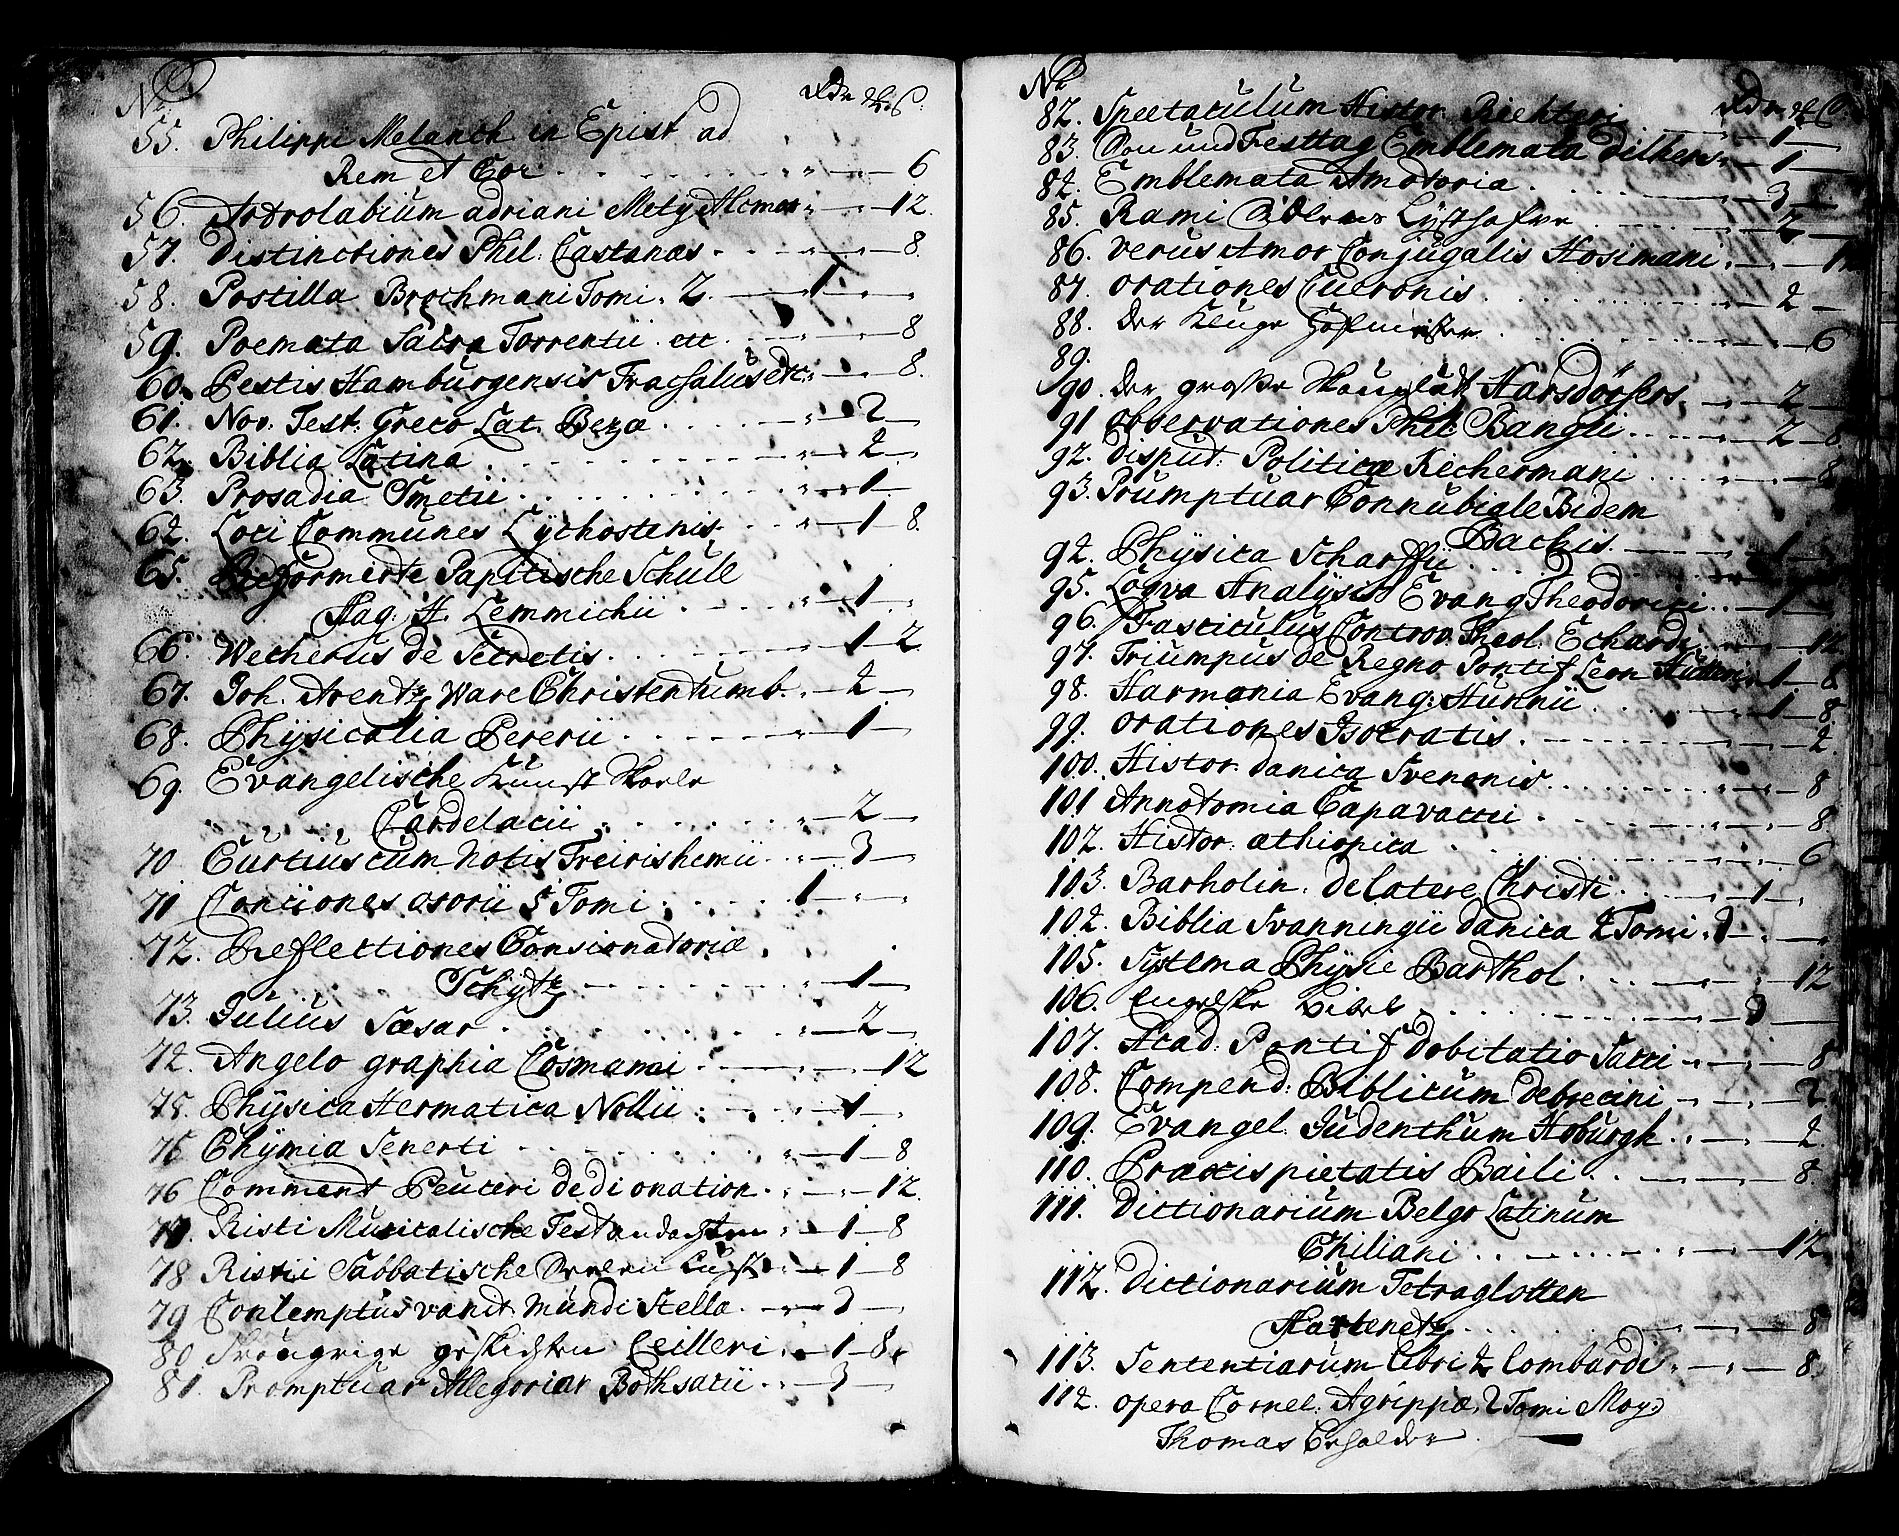 No. Rdr. ℔. S.
55. Philippi Melanch in Epist ad
Rem et Cor . . . . „ — „ — 6
56. Astrolabium adriani Mety Alcmar „ — „ — 12.
57. Distinctiones Phil: Castanæs . . „ — „ — 8.
58. Postilla Brochmani Tomi. 2. — 1 — „ — „
59. Poemata Sacra Torrentii etc . . „ — „ — 8
60. Pestis Hamburgensis Fracsalus etc: „ — „ — 8.
61. Nov. Test. Greco Lat. Beza . . . „ — 2 — „
62. Biblia Latina . . . . „ — 2 — „
63. Prosadia Smetii . . . . „ — 1 — „
64. Loci Communes Lychostenis . . „ — 1 — 8.
65. Reformerte Papistische Schule
Mag: H. Lemmichii . . . „ — 1 — „
66. Wecherus de Secretis . . . „ — 1 — 2
67. Joh. Arentz Ware Christentumb . „ — 2 — „
68. Physicalia Pererii . . . „ — 1 — „
69. Evangelische Kunst
Cardelacii . . . . „ — 2 — „
70. Curtius cum Notis Freirishemii . . „ — 3 — „
71 Conciones osorii 5 Tomi . . . 1 — „ — „
72. Reflectiones Consionatoriæ .
Schytz . . . „ — 1 — „
73. Julius Sæsar . . . . „ — 2 — „
74. Angelo graphia Cosmanni . . „ — „ — 12
75. Physica Hermatica Nollii . . „ — 1 — „
75 Chymia Senerti . . . . „ — 1 — 8
76 Comment Peuceri de di onation . . „ — „ — 12.
77. Risti Musicalische Festandachten „ — 1 — 8
78 Ristii Sabbatische Seelen Lust . „ — 1 — 8
79 Contemptus vanit Mundi Stella . „ — 3 — „
80 Trourige geskichten Ceilleri . „ — 1 — 8.
81. Promptuar Allegoriar Bothsacii . . „ — 3 — „
No Rdr. ℔. S.
82. Spectaculum Histor. Richteri — 1 —
83. Son und Festtag Emblemata Dilhers „ — 1 —
84. Emblemata Amatoria . . . — 3 —
85. Rami . . . — 2 —
86. Verus Amor Conjugalis Hosimani „ — „ — 12
87. orationes Ciceronis . . . — 2 —
88. der Kluge Hofmeister . . . — 6
89.
90. der grosse Harsdörfers — 2 —
91 observationes Phil: Bangii . . . „ — 2 — 8
92. Disput: Politicæ Kechermani . . — 8
93. Prumptuar Connubiale Bidem
Backis — 1 —
94. Physica Scharffii . . . .
95. Logva Analysis Evang Theodorici . . — 1 —
96. Fasciculus Controv. Theol. Echardi „ — 12
97. Triumpus de Regno Pontif Leon Hutteri „ — 1 — 8
98. Harmania Evang: Hunnii . . . — 1 — 8.
99. orationes Isocratis . . . — 2.
100. Histor danica Svenonis . . . — 8
101 Annotomia Capavaccii . . . — 8
102. Histor: æthiopica . . . — 6
103. Barholin: de latere Christi . . . — 1 — „
104. Biblia Svanningii danica 2 Tomi . 3 — „ —
105. Systema Physic Barthol . . . „ — 12
106. Engelske Bibel . . . — 3 —
107. Acad: Pontif dobitatio Sacci . . „ — 8
108. Compend: Biblicum Debrecini „ — „ — 2
109. Evangel. Judenthum Hoburgh . . „ — „ — 2
110. Præxis pietatis Baili . . „ — „ — 8
111. Dictionarium Belgo Latinum
Chiliani . . . „ — „ — 12
112. Dictionarium Tetraglotten
Martenetz . . . „ — 8
113. Sententiarum libri 4 lombardi . „ — „ — 8.
114. opera Cornel: Agrippæ 2 Tomi Moy:
Thomas Beholder —